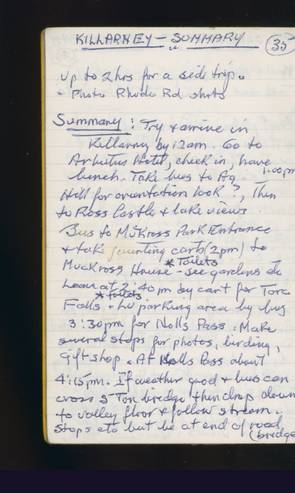 KILLARNEY - SUMMARY
35
up to 2hrs for a side trip.
- Photo Rhode Rd shots
Summary: Try & arrive in
Killarney by 12am. Go to
Arbutus Hotel, check in, have
lunch. Take bus to Ag
1:00pm
Hill for orientation look?, Then
to Ross Castle & lake views.
Bus to Muckross Park Entrance
& take jaunting carts (2pm) to
* Toilets
Muckross House - see gardens etc
Leave at 2:40pm by cart for Torc
* toilets
Falls - to parking area by bus
3:30pm for Molls Pass. Make
several stops for photos, birding,
gift-shop. At Molls Pass about
4:15pm. If weather good & bus can
cross 5 Ton bridge then drop down
to valley floor & follow stream.
Stops etc but be at end of road
(bridge